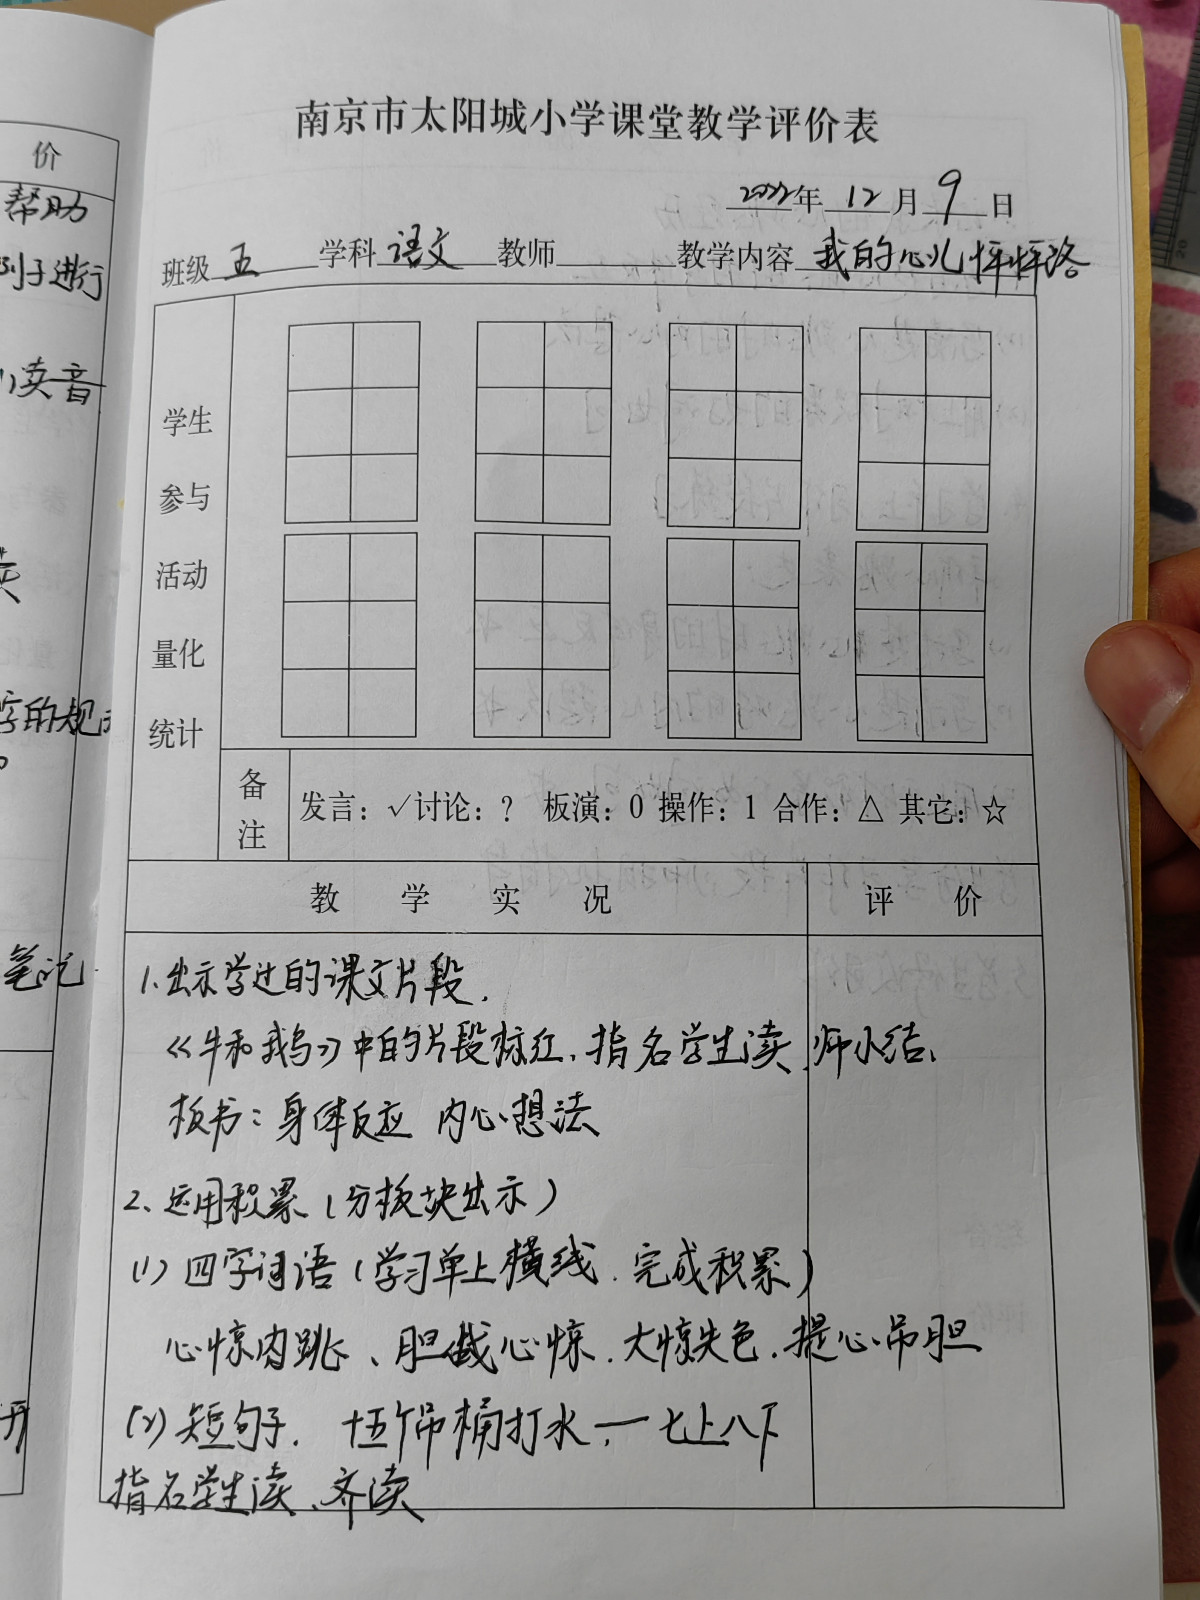 价
帮助
列子进行
读音
读
字的规
笔记
开
南京市太阳城小学课堂教学评价表
2022年 12 月 9 日
班级 五 学科 语文 教师 教学内容 我的心儿怦怦
学生
参与
活动
量化
统计
备
注
发言：√讨论：？ 板演：0 操作：1 合作：△ 其它：☆
教 学 实 况 评 价
1.出示学过的课文片段.
《牛和鹅》中的片段标红、指名学生读、师小结、
板书：身体反应 内心想法
2、运用积累（分板块出示）
(1) 四字词语（学习单上横线、完成积累）
心惊肉跳、胆战心惊、大惊失色、提心吊胆
(2) 短句子. 十五个吊桶打水，—七上八下
指名学生读、齐读